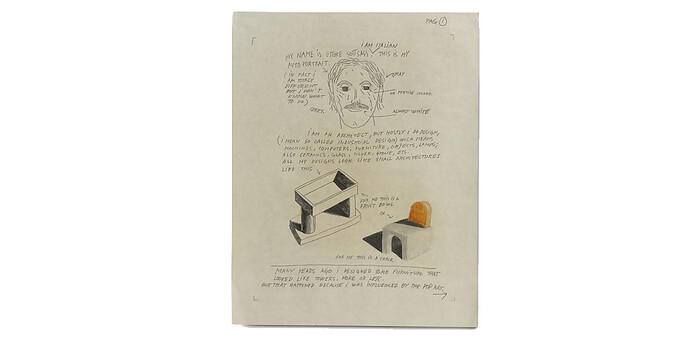 PAG 1
I AM ITALIAN
MY NAME IS ETTORE SOTTSASS. THIS IS MY
AUTOPORTRAIT.
(IN FACT I
AM TOTALY
DIFFERENT
BUT I DON'T
KNOW WHAT
TO DO)
GRAY
GREY
ALMOST WHITE
I AM AN ARCHITECT, BUT MOSTLY I DO DESIGN,
(I MEAN SO CALLED INDUSTRIAL DESIGN) WICH MEANS
MACHINES, COMPUTERS, FURNITURE, OBJECTS, LAMPS;
ALSO CERAMICS, GLASS, SILVER, STONE, ETC..
ALL MY DESIGNS LOOK LIKE SMALL ARCHITECTURES
LIKE THIS
FOR ME THIS IS A
FRUIT BOWL
OR
FOR ME THIS IS A CHAIR
MANY YEARS AGO I DESIGNED SOME FURNITURE THAT
LOOKED LIKE TOWERS. MORE OR LESS.
BUT THAT HAPPENED BECAUSE I WAS INFLUENCED BY THE POP ART